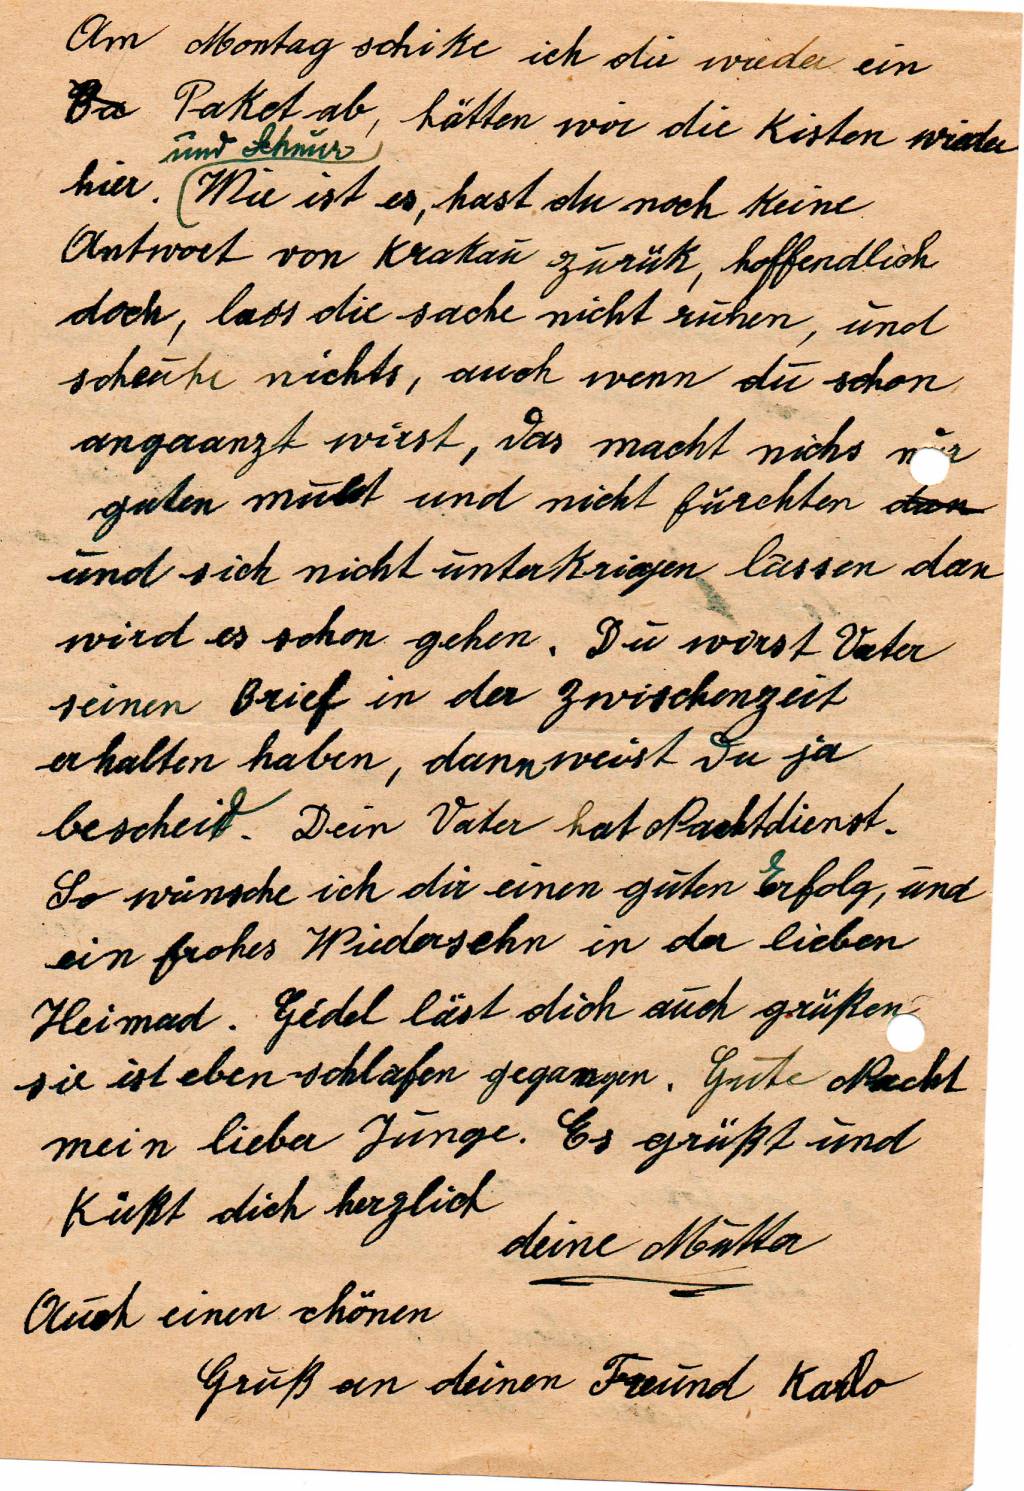 Am Montag schike ich dir wieder ein
Pa Paket ab, hätten wir die Kisten wieder
und Schnur
hier. Wie ist es, hast du noch keine
Antwort von Krakau zurük, hoffendlich
doch, lass die sache nicht ruhen, und
scheuhe nichts, auch wenn du schon
angeranzt wirst, das macht nichs nur
guten mut und nicht fürchten dan
und sich nicht unterkrigen lassen dan
wird es schon gehen. Du wirst Vater
seinen Brief in der Zwischenzeit
erhalten haben, dann weist Du ja
bescheid. Dein Vater hat Nachtdienst.
So wünsche ich dir einen guten Erfolg, und
ein frohes Wiedersehn in der lieben
Heimad. Gédel läst dich auch grüßen
sie ist eben schlafen gegangen. Gute Nacht
mein lieber Junge. Es grüßt und
Küßt dich herzlich
deine Mutter
Auch einen schönen
Gruß an deinen Freund Karlo